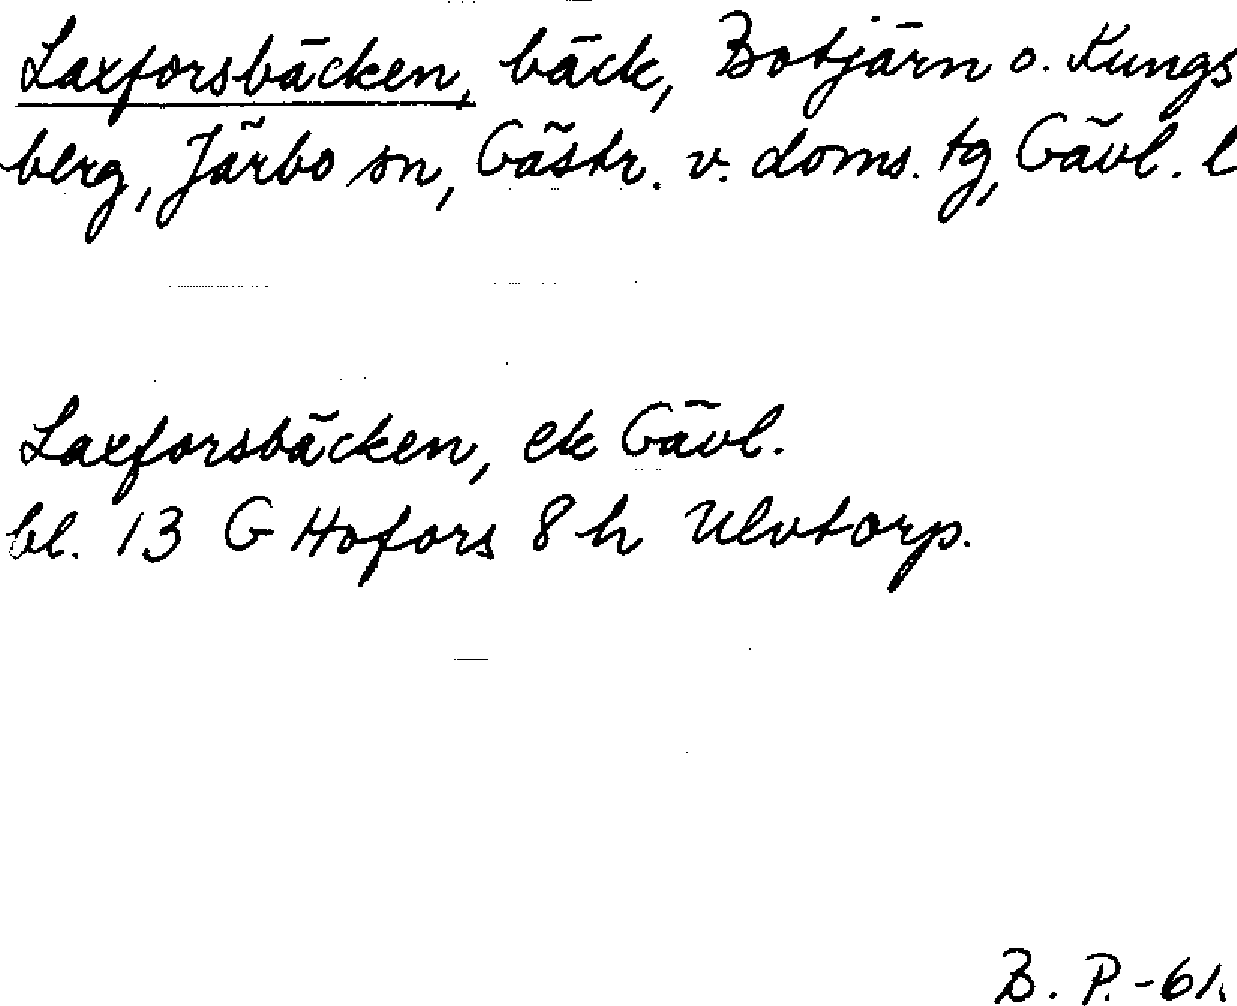 Laxforsbäcken, bäck, Botjärn o. Kungs
berg, Järbo sn, Gästr. v. doms. tg, Gävl. l
Laxforsbäcken, ek Gävl.
bl. 13 G Hofors 8 h Ulvtorp.
B. P. -61.